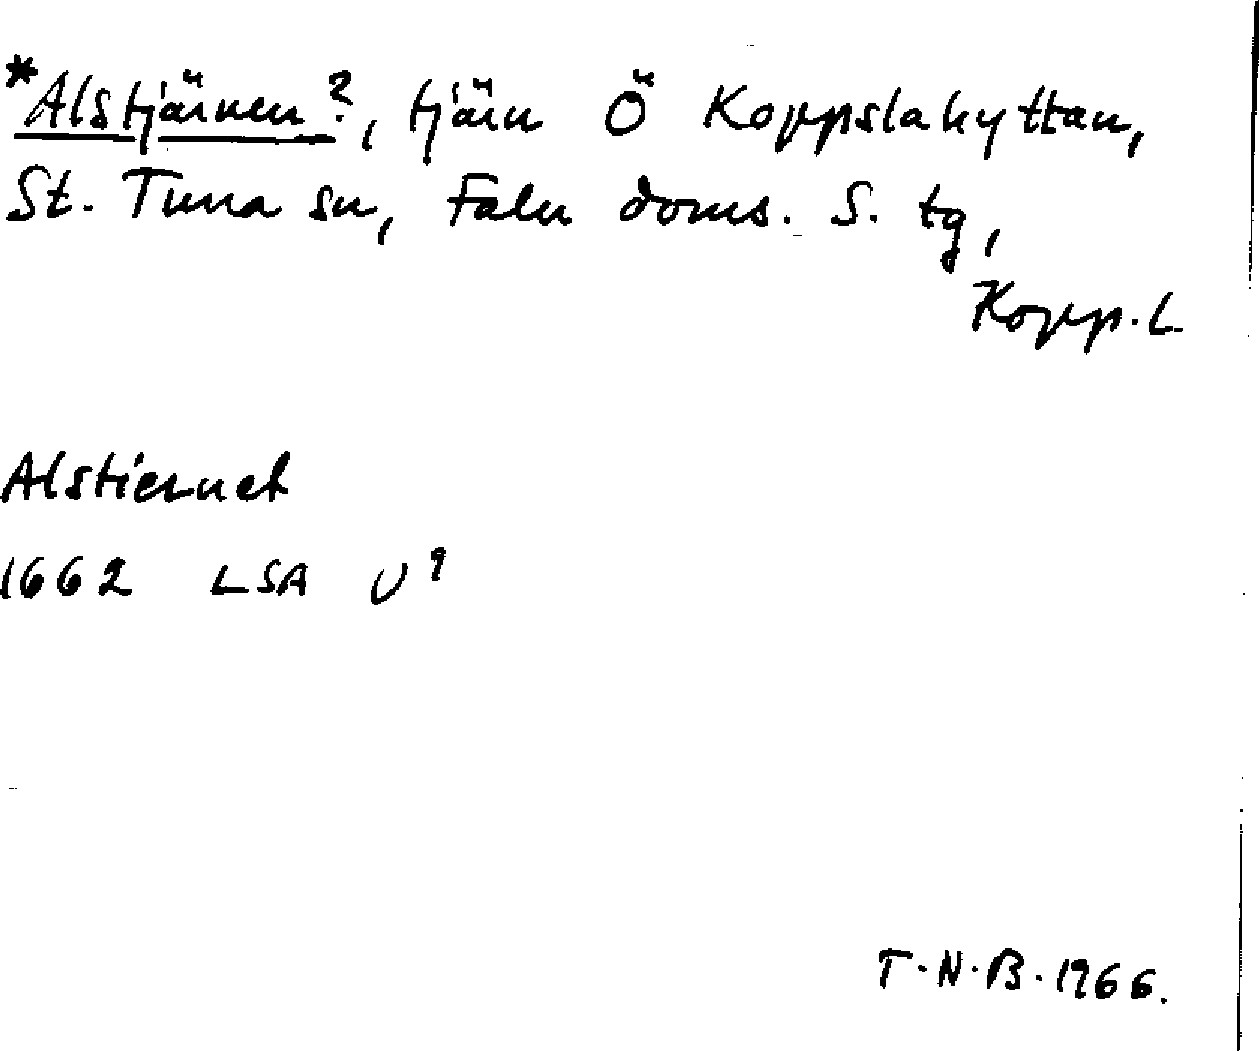 *Alstjärnen?, tjärn Ö Koppslahyttan,
St. Tuna sn, Falu doms. S. tg,
Kopp. L
Alstiernet
1662 LSA U⁹
T.N.B. 1966.